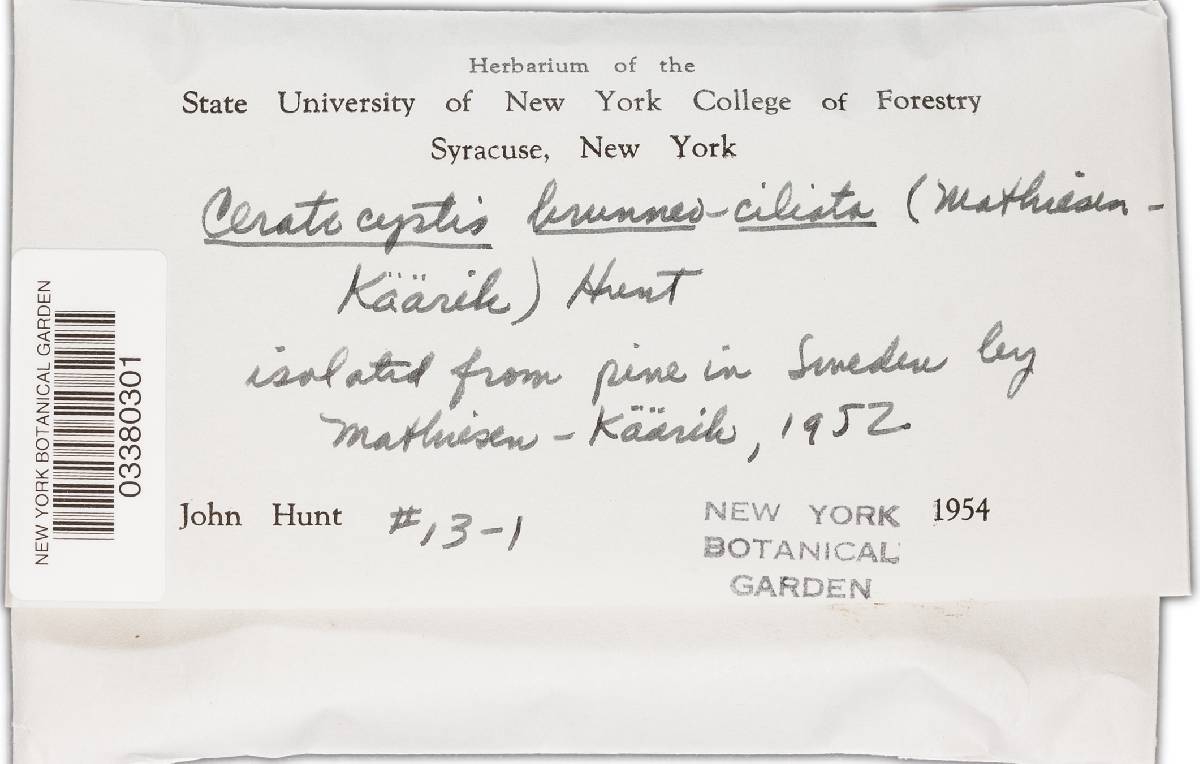 Herbarium of the
State University of New York College of Forestry
Syracuse, New York
Ceratocystis brunneo-ciliata (Mathiesen-
Käärik) Hunt
isolated from pine in Sweden by
Mathiesen-Käärik, 1952
John Hunt #13-1
1954
NEW YORK
BOTANICAL
GARDEN
NEW YORK BOTANICAL GARDEN
03380301